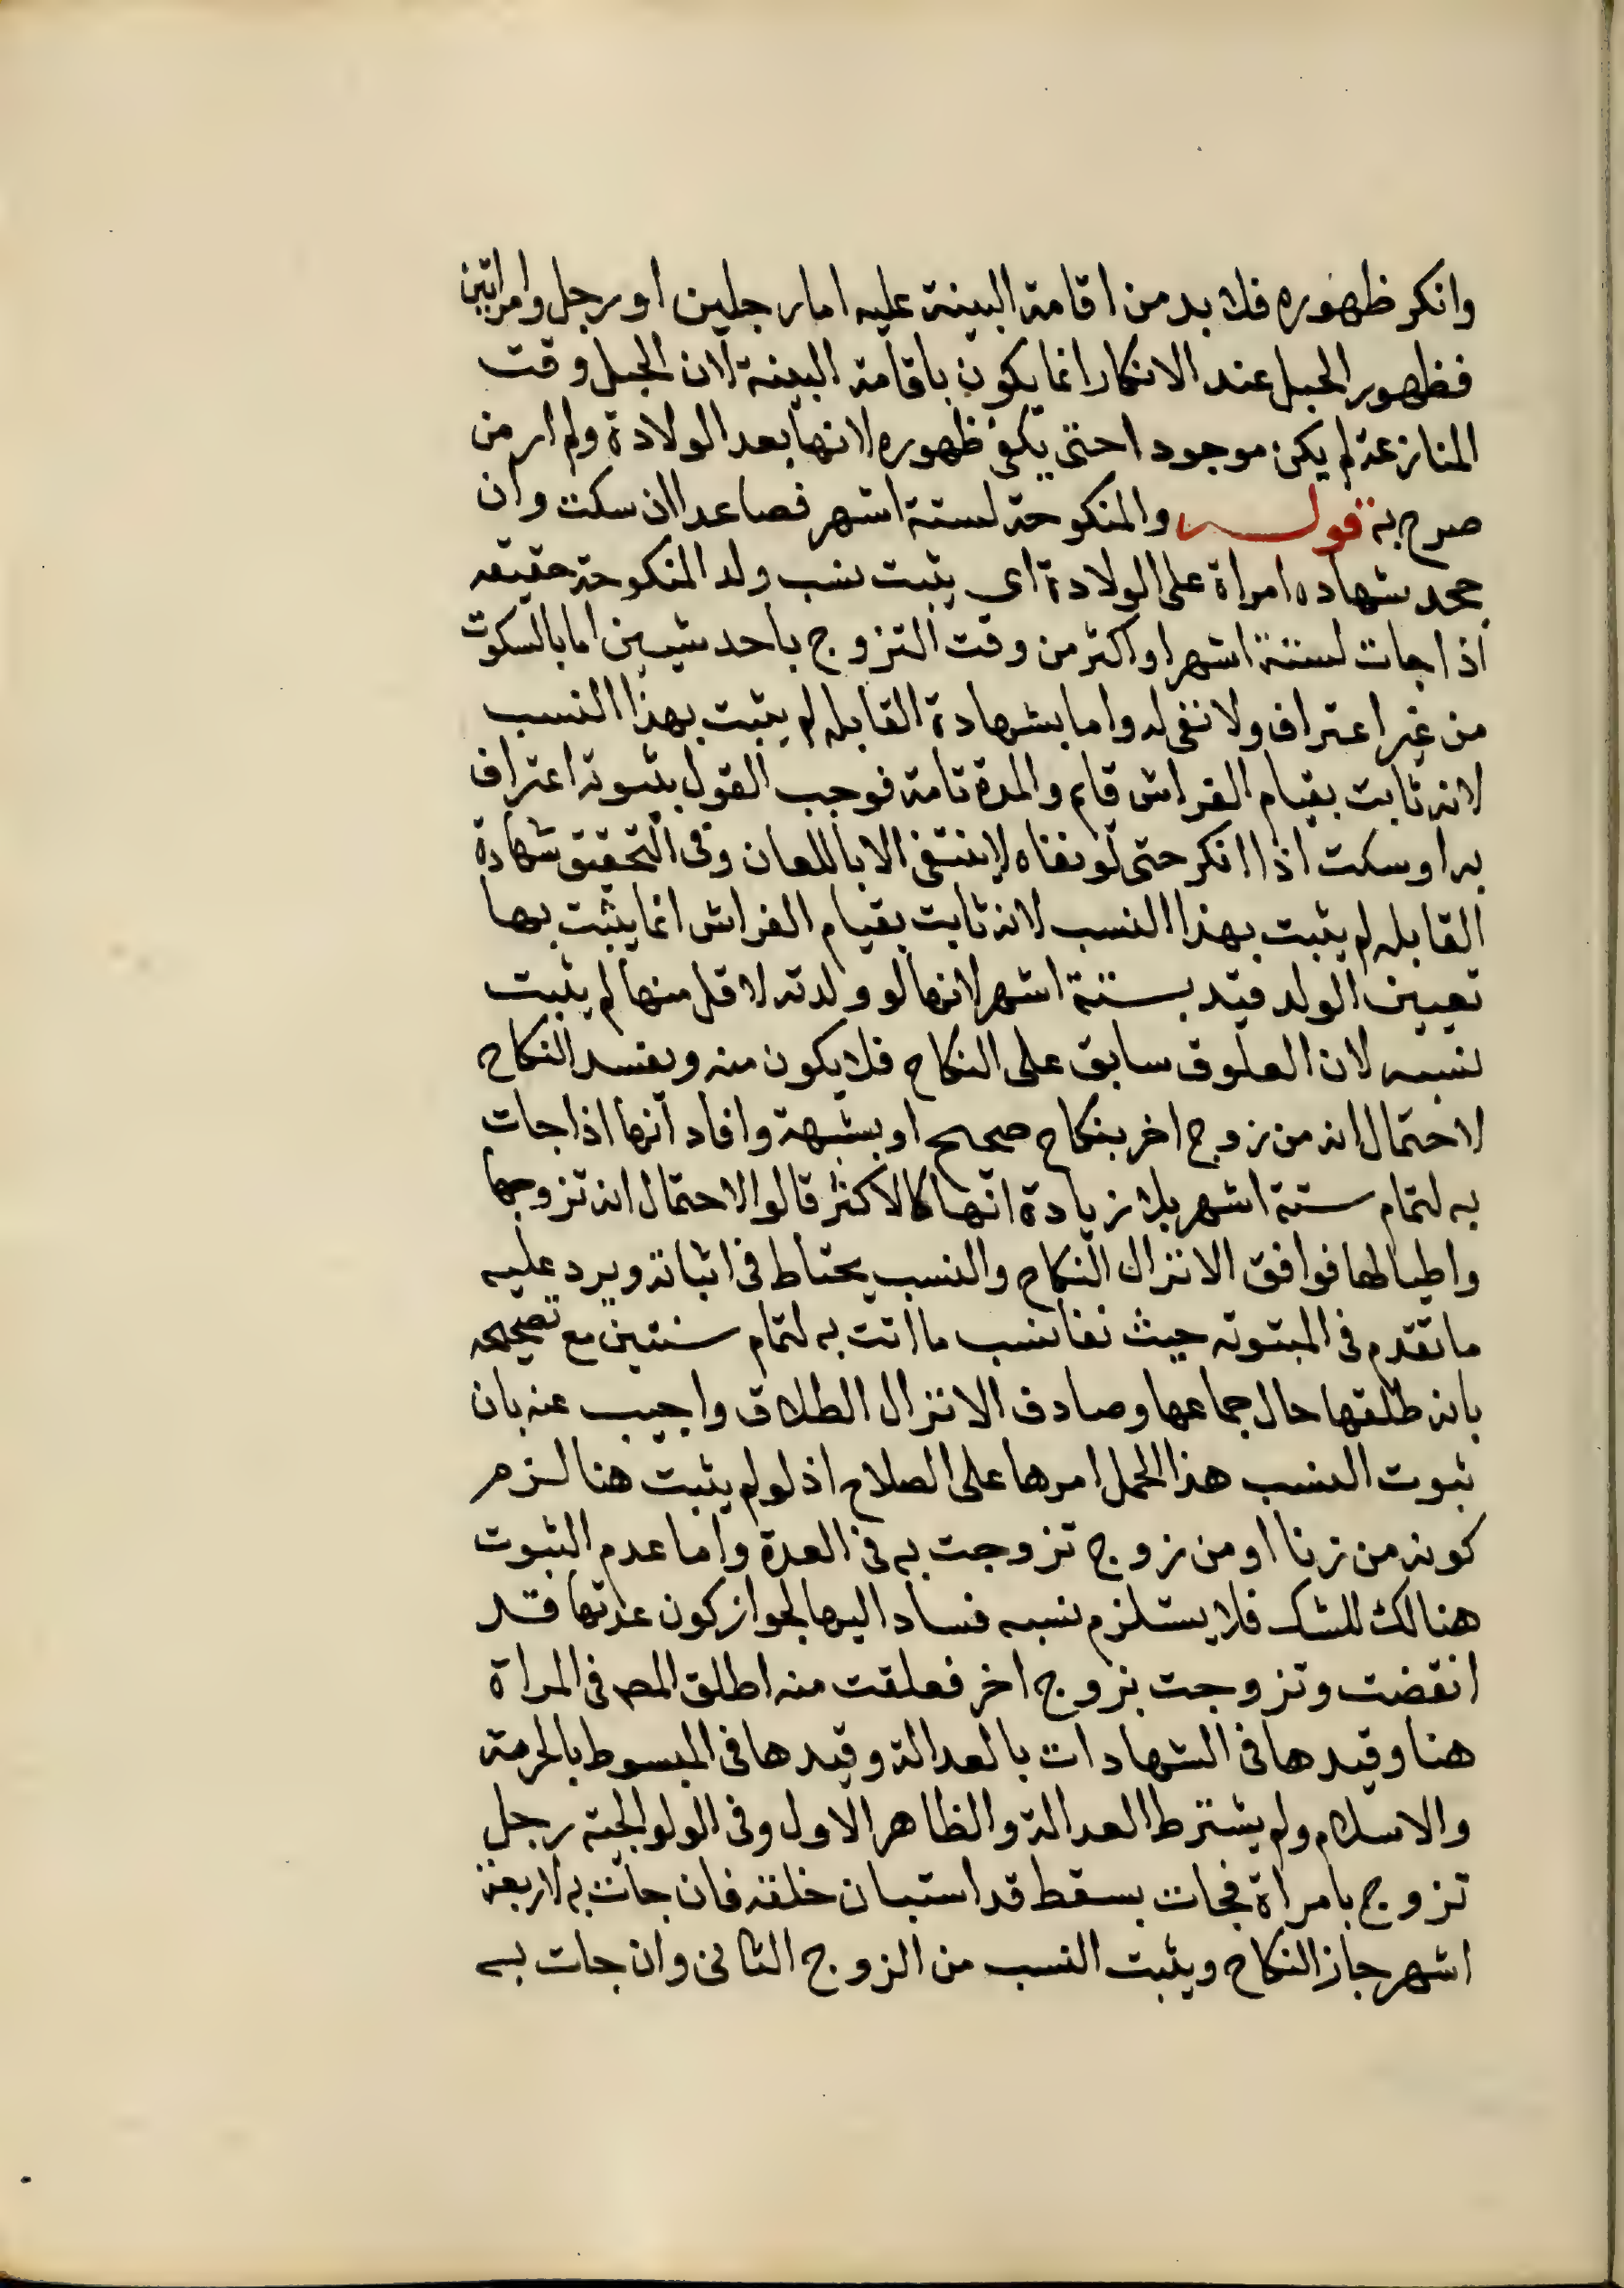 وانكر ظهوره فلا بد من اقامة البينة عليه اما رجلين او رجل وامراتين
فظهور الحبل عند الانكار انما يكون باقامة البينة لان الحبل وقت
المنازعة لم يكن موجودا حتى يكفى ظهوره لانها بعد الولادة ولم ار من
صرح به قوله والمنكوحة لستة اشهر فصاعدا ان سكت وان
جحد بشهاده امراة على الولادة اى يثبت نسب ولد المنكوحة حقيقه
اذا جات لستة اشهر او اكثر من وقت التزوج باحد شيين اما بالسكوت
من غير اعتراف ولا نفى له واما بشهادة القابله لم يثبت بهذا النسب
لانه ثابت بقيام الفراش قايم والمدة تامة فوجب القول بثبوته اعتراف
به او سكت اذا انكر حتى لو نفاه لا ينتفى الا باللعان وفى التحقيق شهادة
القابله لم يثبت بهذا النسب لانه ثابت بقيام الفراش انما يثبت بها
تعيين الولد قيد بستة اشهر لانها لو ولدته لاقل منها لم يثبت
نسبه لان العلوق سابق على النكاح فلا يكون منه ويفسد النكاح
لاحتمال انه من زوج اخر بنكاح صحيح او بشبهة وافاد انها اذا جات
به لتمام ستة اشهر بلا زيادة انها كالاكثر قالوا لاحتمال انه تزوجها
واطيا لها فوافق الانزال النكاح والنسب يحتاط فى اثباته ويرد عليه
ما تقدم فى المبتوته حيث نفا نسب ما اتت به لتمام سنتين مع تصحيحه
بانه طلقها حال جماعها وصادف الانزال الطلاق واجيب عنه بان
ثبوت النسب هذا الحمل امرها على الصلاح اذ لو لم يثبت هنا لزم
كونه من زنا او من زوج تزوجت به فى العدة واما عدم الثبوت
هنالك للشك فلا يستلزم نسبه فساد اليها لجواز كون عدتها قد
انقضت وتزوجت بزوج اخر فعلقت منه اطلق المص فى المراة
هنا وقيدها فى الشهادات بالعدالة وقيدها فى المبسوط بالحرمة
والاسلام ولم يشترط العدالة والظاهر الاول وفى الولوالجية رجل
تزوج بامراة فجات بسقط قد استبان خلقه فان جات به لاربعة
اشهر جاز النكاح ويثبت النسب من الزوج الثانى وان جات به